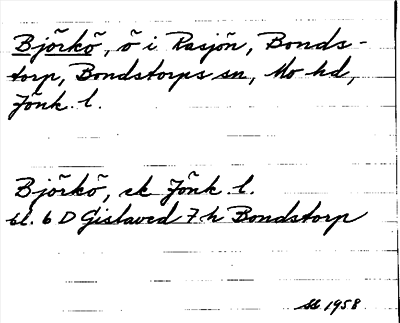 Björkö, ö i Rasjön, Bonds-
torp, Bondstorps sn, Mo hd,
Jönk. l.
Björkö, ek Jönk. l.
bl. 6 D Gislaved 7 h Bondstorp
1958